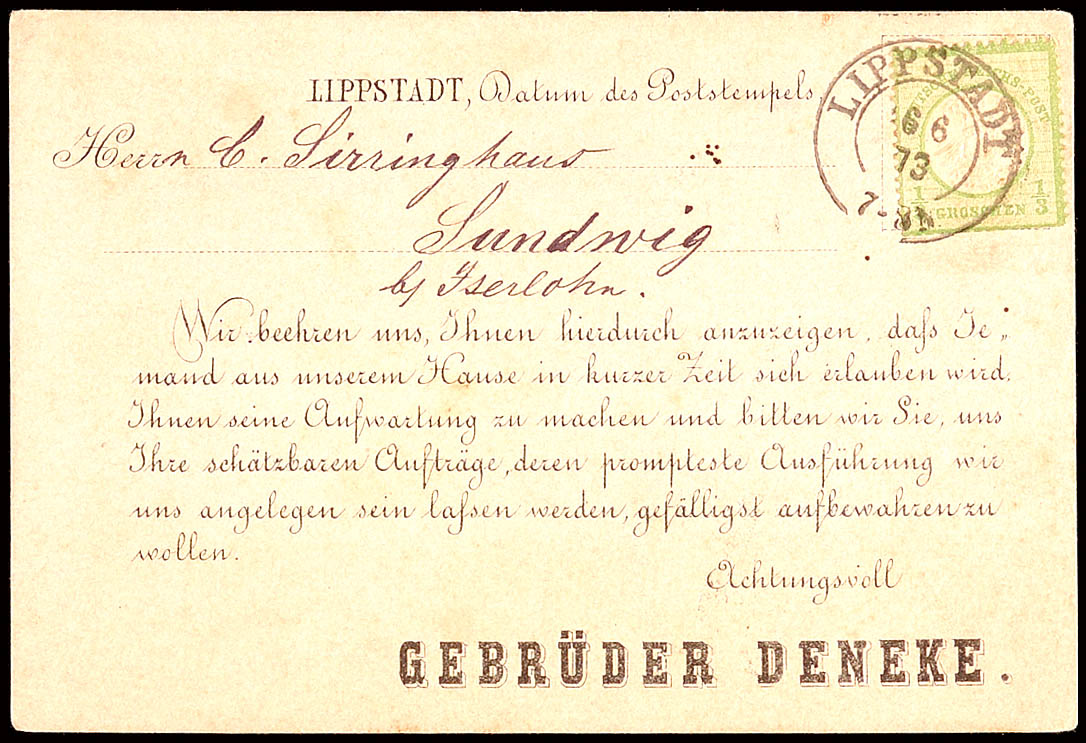 LIPPSTADT, Datum des Poststempels.
LIPPSTADT
6 6
73
7-8N.
REICHS-POST
1/3 GROSCHEN 1/3
Herrn C. Sirringhaus
Sundwig
b/ Iserlohn.
Wir beehren uns, Ihnen hierdurch anzuzeigen, daſs Je„
mand aus unserem Hause in kurzer Zeit sich erlauben wird,
Ihnen seine Aufwartung zu machen und bitten wir Sie, uns
Ihre schätzbaren Aufträge, deren prompteste Ausführung wir
uns angelegen sein laſsen werden, gefälligst aufbewahren zu
wollen.
Achtungsvoll
GEBRÜDER DENEKE.